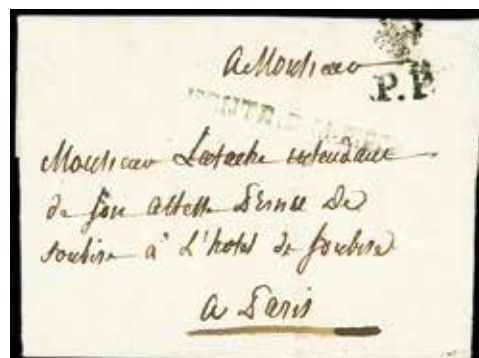 A Monsieur
P.P
Monsieur intendant
de son altesse de
soubise à L'hotel de soubise
A Paris